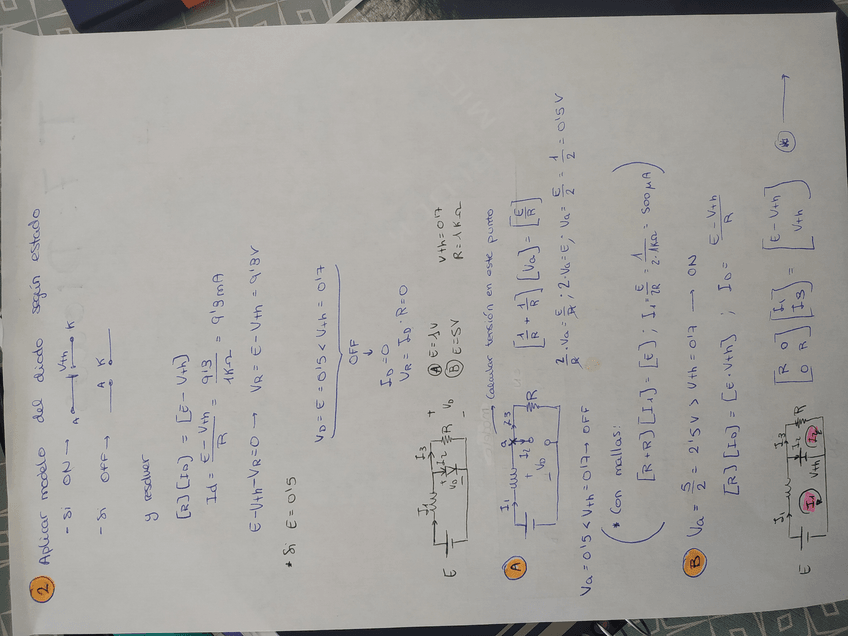 2 Aplicar modelo del diodo según estado
- Si ON → A Vth K
- Si OFF → A K
y resolver
[R] [ID] = [E - Vth]
Id = E - Vth / R = 9'3 / 1KΩ = 9'3 mA
E - Vth - VR = 0 → VR = E - Vth = 9'3V
* Si E = 0'5
VD = E = 0'5 < Vth = 0'7
OFF
↓
ID = 0
VR = ID · R = 0
E I1 I3 + VD I2 R VD + -
A E = 1V
B E = 5V
Vth = 0'7
R = 1KΩ
A I1 a I3 I2 + VD - R
Calcular tensión en este punto
[1/R + 1/R] [Va] = [E/R]
2/R · Va = E/R ; 2 · Va = E ; Va = E/2 = 1/2 = 0'5V
Va = 0'5 < Vth = 0'7 → OFF
(* Con mallas:
[R + R] [I1] = [E] ; I1 = E/R = 1 / 2·1KΩ = 500 μA)
B Va = 5/2 = 2'5V > Vth = 0'7 → ON
[R] [ID] = [E - Vth] ; ID = E - Vth / R
E I1 I3 I1 Vth I2 R
[R 0 / 0 R] [I1 / I3] = [E - Vth / Vth]
→